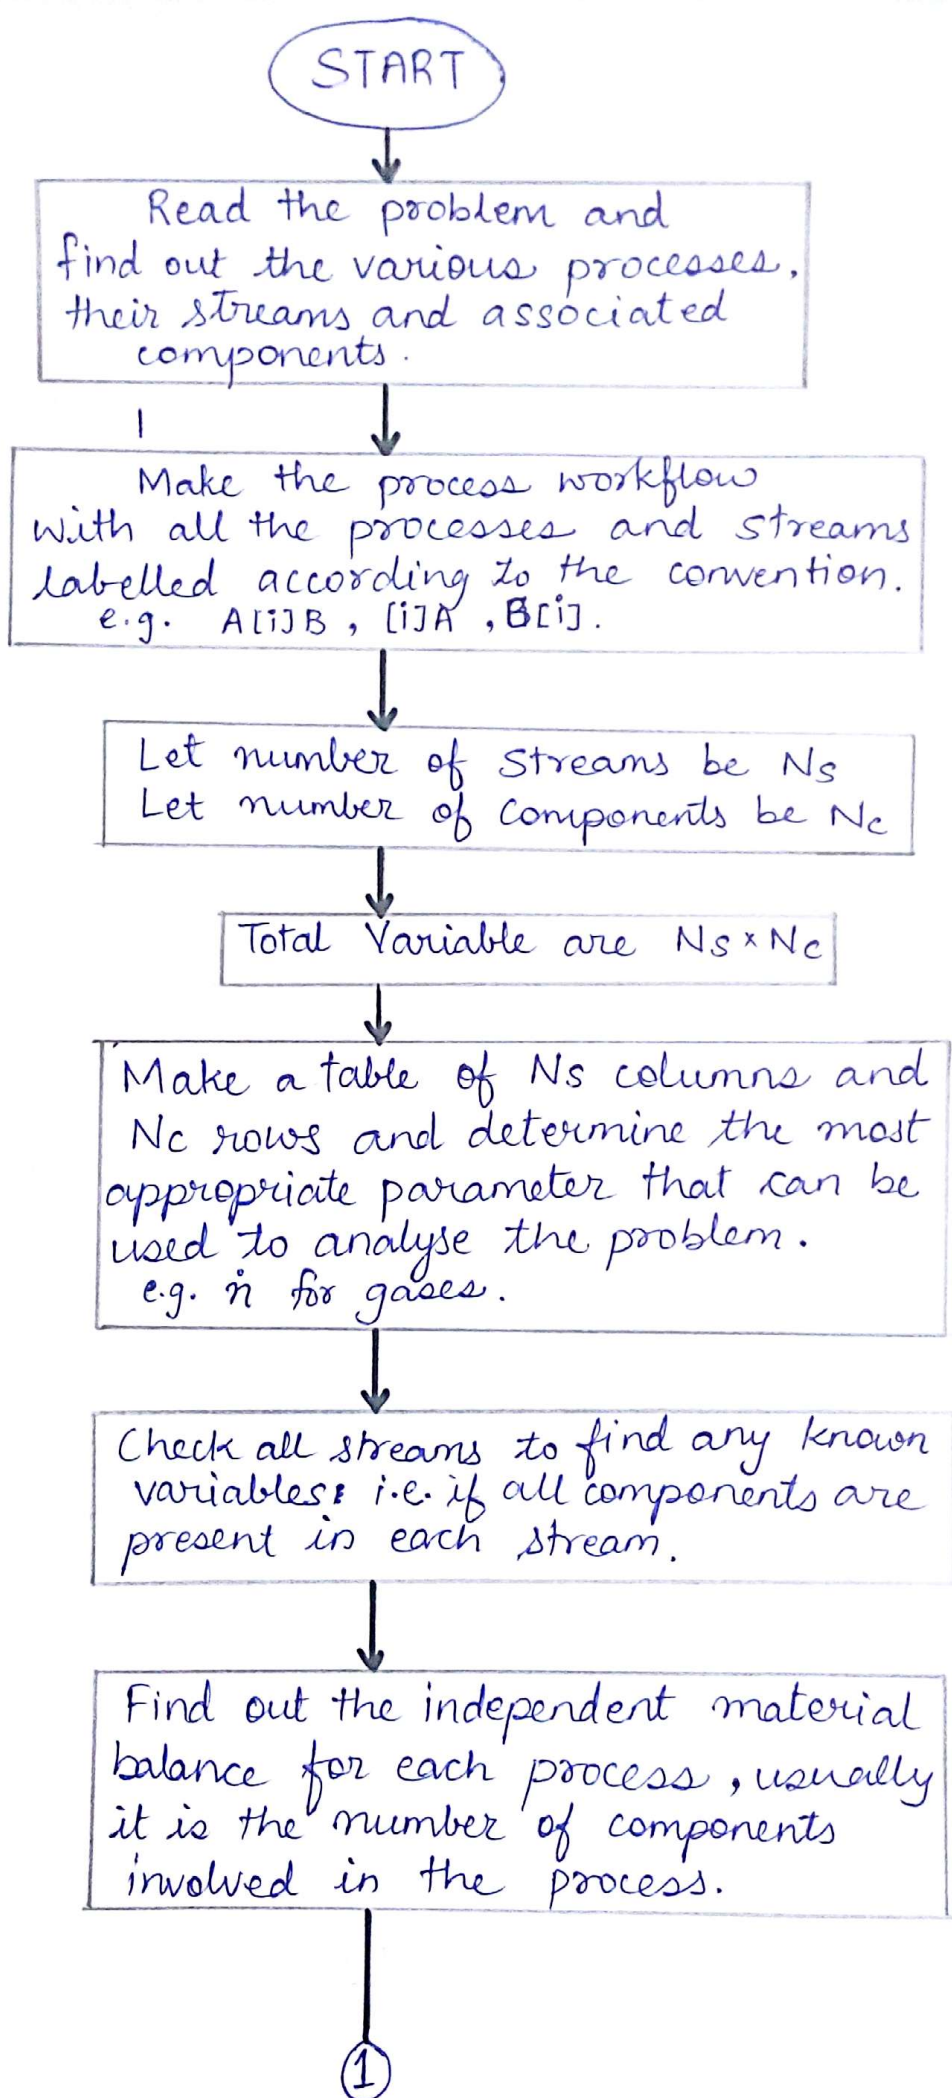 START
Read the problem and
find out the various processes,
their streams and associated
components.
Make the process workflow
with all the processes and streams
labelled according to the convention.
e.g. A[i]B , [i]A , B[i].
Let number of streams be Ns
Let number of components be Nc
Total Variable are Ns × Nc
Make a table of Ns columns and
Nc rows and determine the most
appropriate parameter that can be
used to analyse the problem.
e.g. ṅ for gases.
Check all streams to find any known
variables: i.e. if all components are
present in each stream.
Find out the independent material
balance for each process, usually
it is the number of components
involved in the process.
1